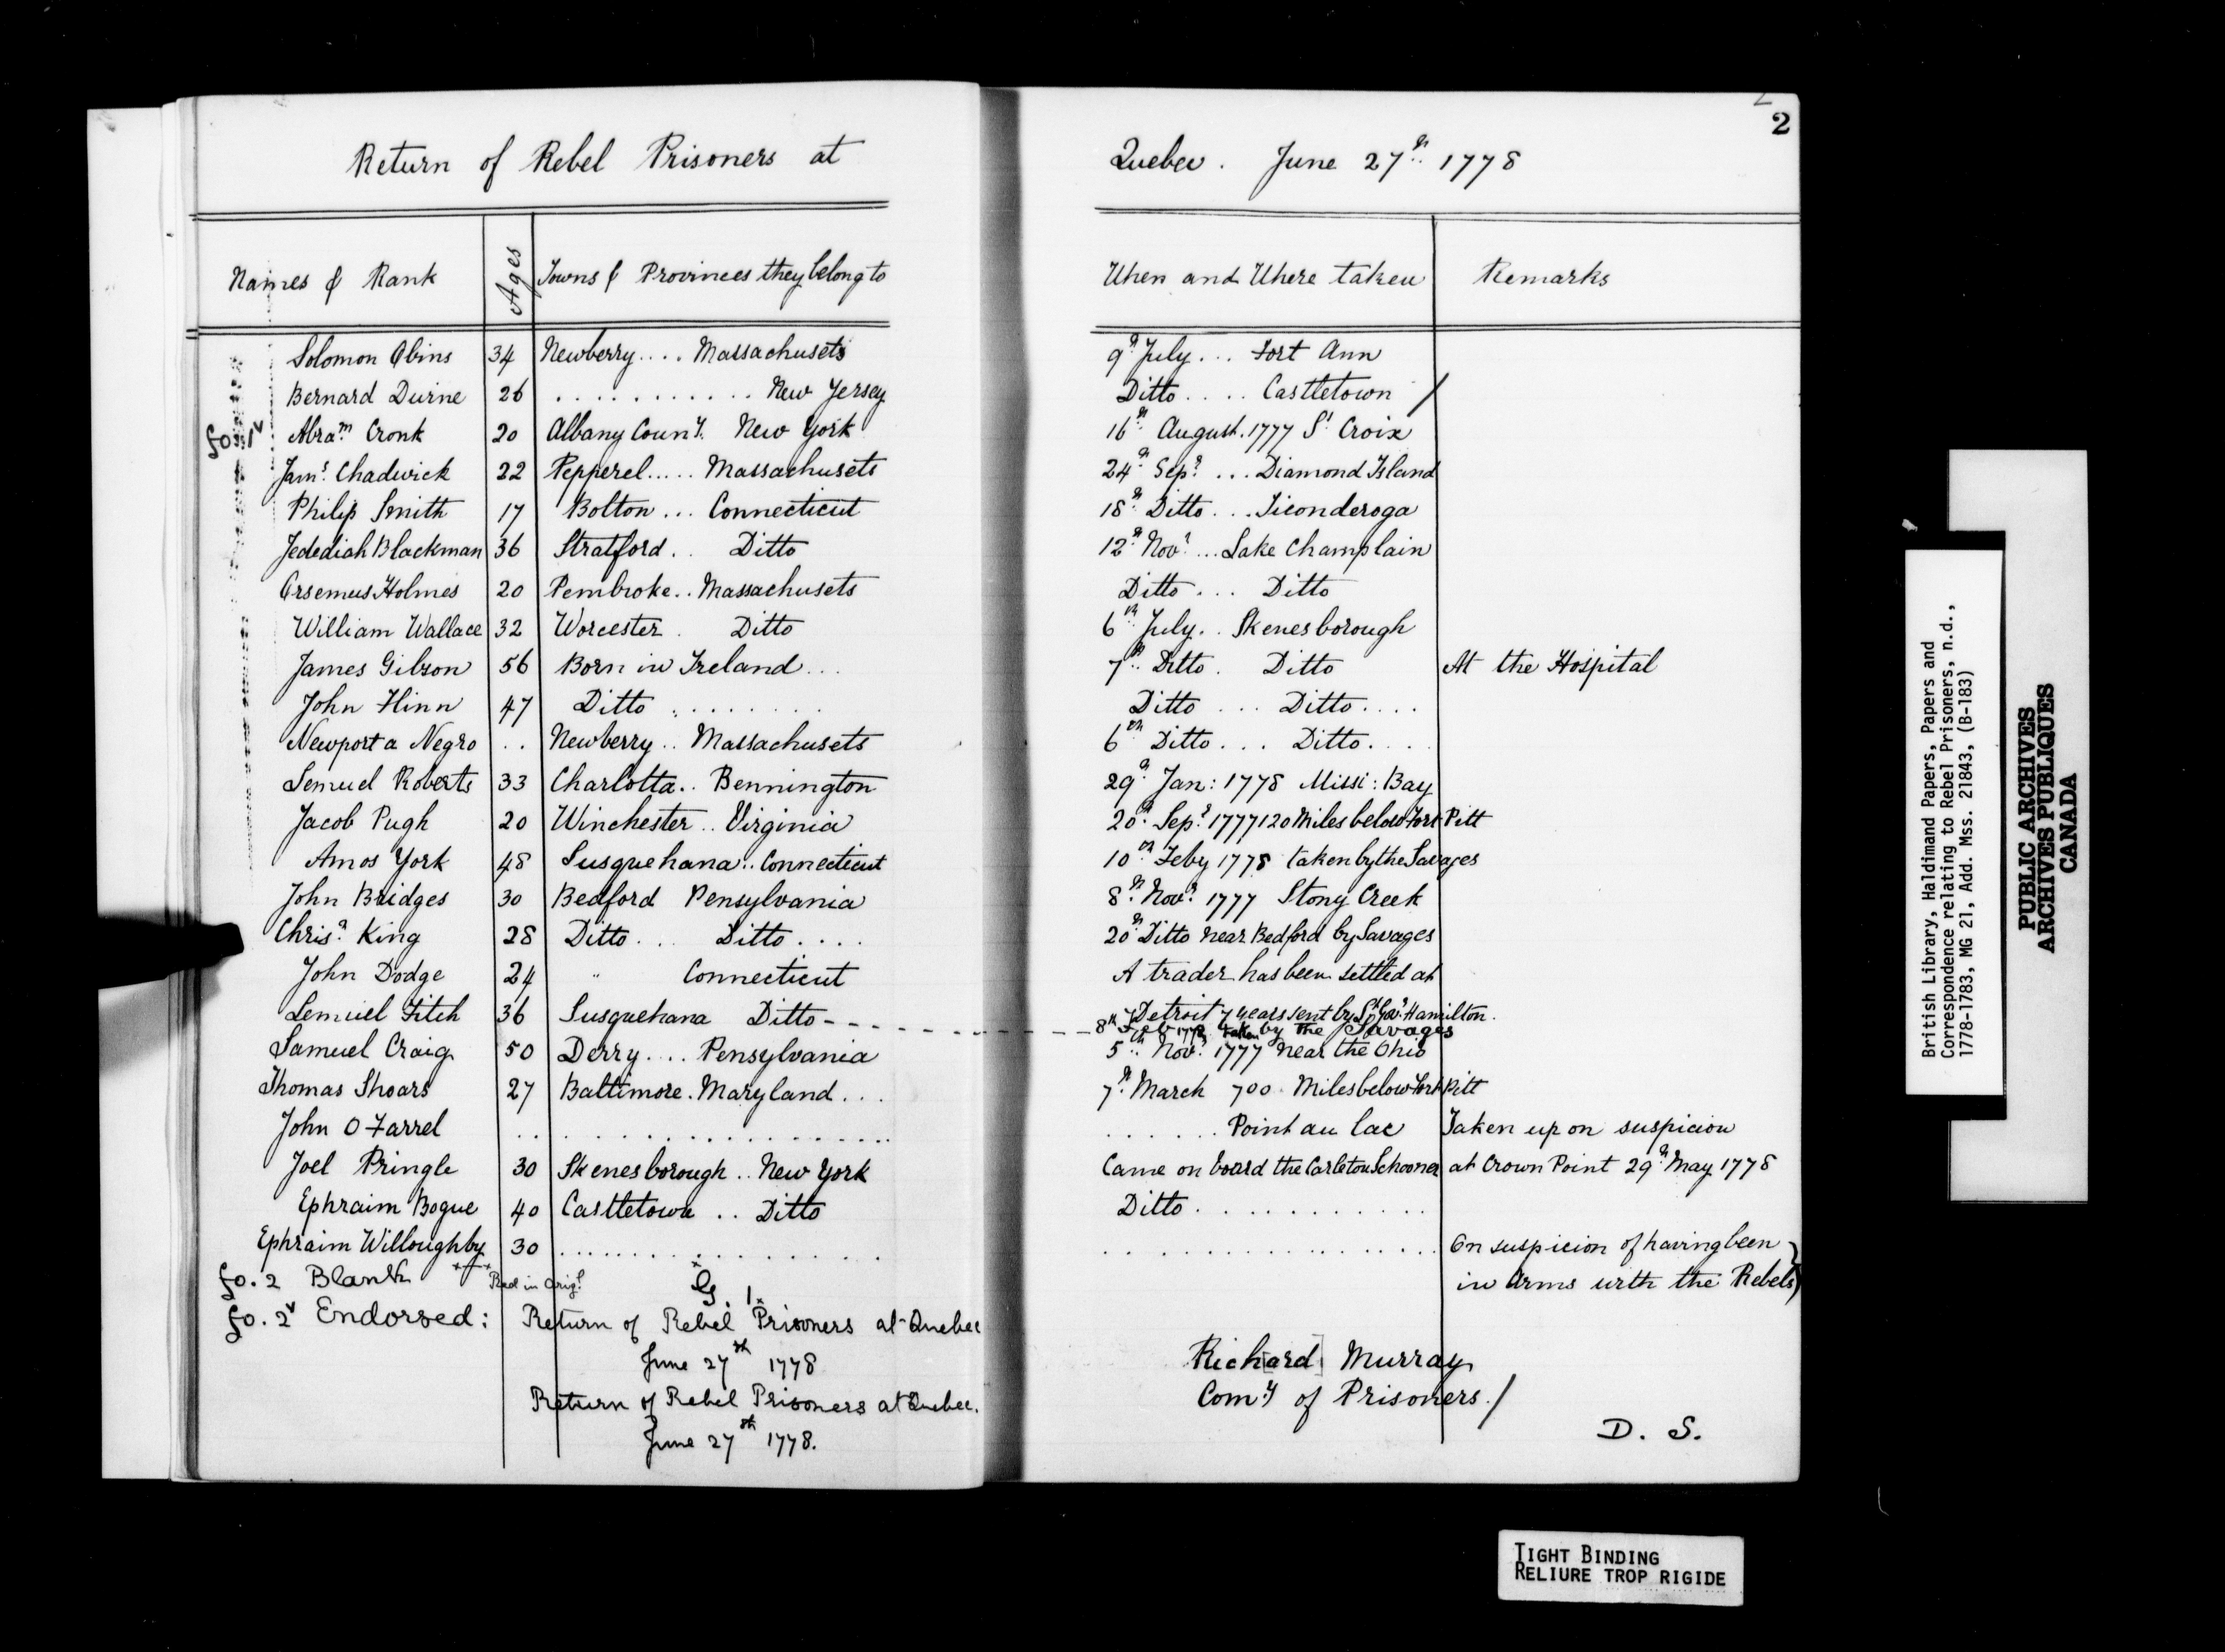 2
Return of Rebel Prisoners at Quebec. June 27th 1778
Names & Rank Ages Towns & Provinces they belong to When and Where taken Remarks
Solomon Obins 34 Newberry.... Massachusets 9th July... Fort Ann
Bernard Durne 26 ............ New Jersey Ditto.... Castletown /
fo. 1v Abram Cronk 20 Albany County. New York 16th August. 1777 St Croix
Jams Chadwick 22 Pepperel..... Massachusets 24th Sepr ... Diamond Island
Philip Smith 17 Bolton... Connecticut 18th Ditto... Ticonderoga
Jedediah Blackman 36 Stratford.. Ditto 12th Novr ... Lake Champlain
Orsemus Holmes 20 Pembroke.. Massachusets Ditto... Ditto
William Wallace 32 Worcester. Ditto 6th July.. Skenesborough
James Gibson 56 Born in Ireland... 7th Ditto. Ditto At the Hospital
John Flinn 47 Ditto ........ Ditto ... Ditto....
Newport a Negro .. Newberry.. Massachusets 6th Ditto... Ditto....
Lemuel Roberts 33 Charlotta.. Bennington 29th Jan: 1778 Missi: Bay
Jacob Pugh 20 Winchester.. Virginia 20th Sepr 1777 120 Miles below Fort Pitt
Amos York 48 Susquehana.. Connecticut 10th Feby 1778 taken by the Savages
John Bridges 30 Bedford Pensylvania 8th Novr 1777 Stony Creek
Chrisn King 28 Ditto... Ditto.... 20th Ditto near Bedford by Savages
John Dodge 24 " Connecticut A trader has been settled at
Detroit 7 years sent by Lt Govr Hamilton.
Lemuel Fitch 36 Susquehana Ditto - - - - 8th Feb 1778 taken by the Savages
Samuel Craig 50 Derry.... Pensylvania 5th Novr 1777 near the Ohio
Thomas Shoars 27 Baltimore. Maryland... 7th March 700 Miles below Fort Pitt
John O Farrel .. .................. ...... Point au lac Taken up on suspicion
Joel Pringle 30 Skenesborough.. New York Came on board the Carleton Schooner at Crown Point 29th May 1778
Ephraim Bogue 40 Castletown .. Ditto Ditto............
Ephraim Willoughby 30 .................. ................. On suspicion of having been
in Arms with the Rebels
fo. 2 Blank x—x Red in Origl x G. 1. x
fo. 2v Endorsed: Return of Rebel Prisoners at Quebec
June 27th 1778
Return of Rebel Prisoners at Quebec.
June 27th 1778.
Rich[ard] Murray
Comy of Prisoners./
D. S.
British Library, Haldimand Papers, Papers and
Correspondence relating to Rebel Prisoners, n.d.,
1778-1783, MG 21, Add. Mss. 21843, (B-183)
PUBLIC ARCHIVES
ARCHIVES PUBLIQUES
CANADA
TIGHT BINDING
RELIURE TROP RIGIDE